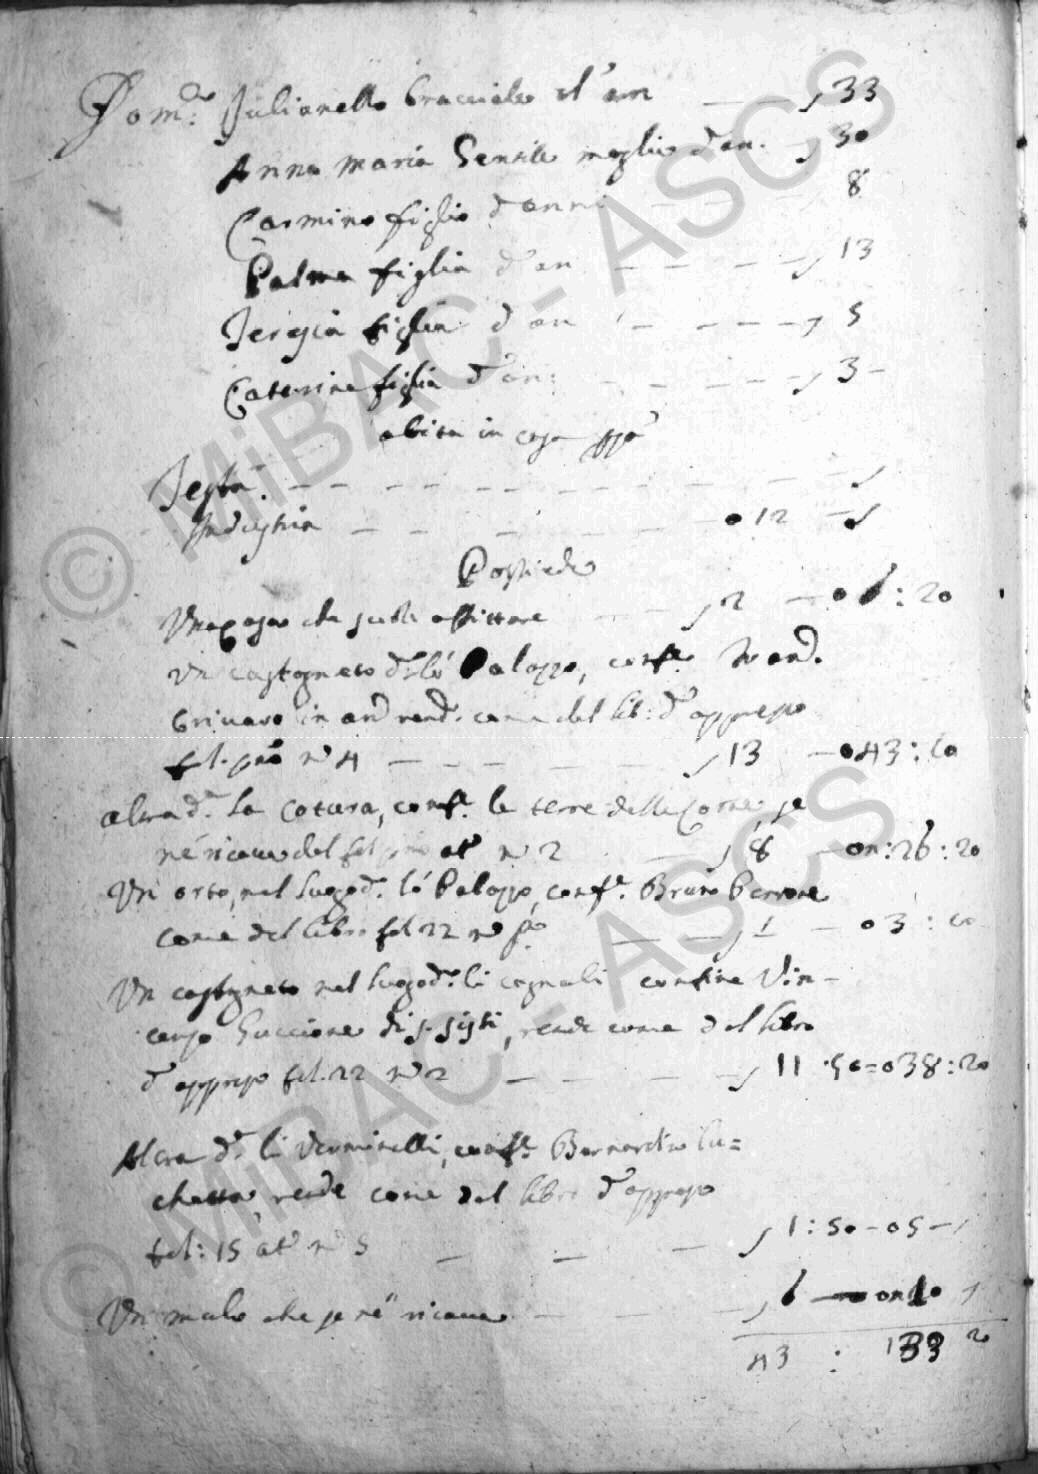 Dom:co Julianello bracciale d'an — — 33
Anna Maria Gentile moglie d'an. — 30
Carmino figlio d'anni — — 8
Palma figlia d'an — — — 13
Teresia figlia d'an — — — 5
Caterina figlia d'an: — — — 3 —
abita in casa ppa
Testa. — — — —
Industria — — — — 012 —
Possiede
Una casa che suole affittare — — 2 — 06:20
Un castagneto d:o lo Palazzo, conf:e And.
come dal lib: d'apprezzo
fol. p:mo n:o 4 — — — — 13 — 043:10
altra d:a la Cotura, conf:e le terre della Corte, se
né ricava dal fol at:o n:o 2 — 8 — on:26:20
Un orto, nel luogo d:o lo Palazzo, conf:e Bruno Perrone
come dal libro fol 22 n:o p:o — — 1 — 03:10
Un castagneto nel luogo d:o li cognali confine Vin-
cenzo Guccione di S. Sisti, rende come dal libro
d'apprezzo fol. 22 n:o 2 — — — 11.50=038:20
Altra d:a li Verminelli, conf:e Bernardino Lu=
chetta, rende come dal libro d'apprezzo
fol: 15 at:o n:o 5 — — — 1:50-05-
Un mulo che se né ricava — — — 6 — on 20
43 : 133 20
© MiBAC - ASCS
© MiBAC - ASCS